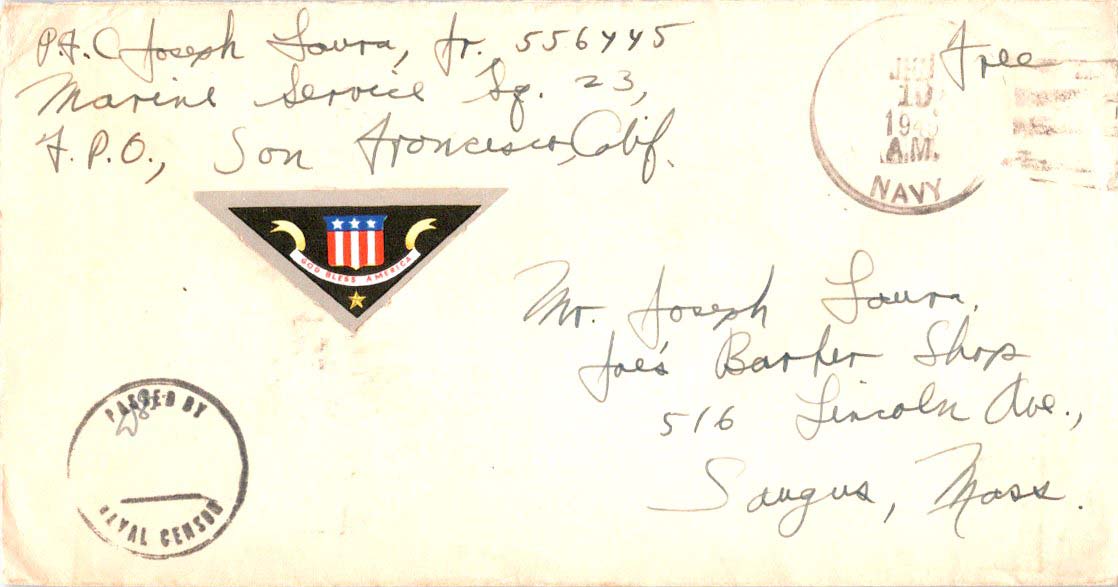 P.F.C Joseph Laura, Jr. 556445
Marine Service Sq. 23,
F.P.O., San Francisco, Calif.
Free
A.M.
NAVY
GOD BLESS AMERICA
Mr. Joseph Laura,
Joe's Barber Shop
516 Lincoln Ave.,
Saugus, Mass.
PASSED BY
NAVAL CENSOR